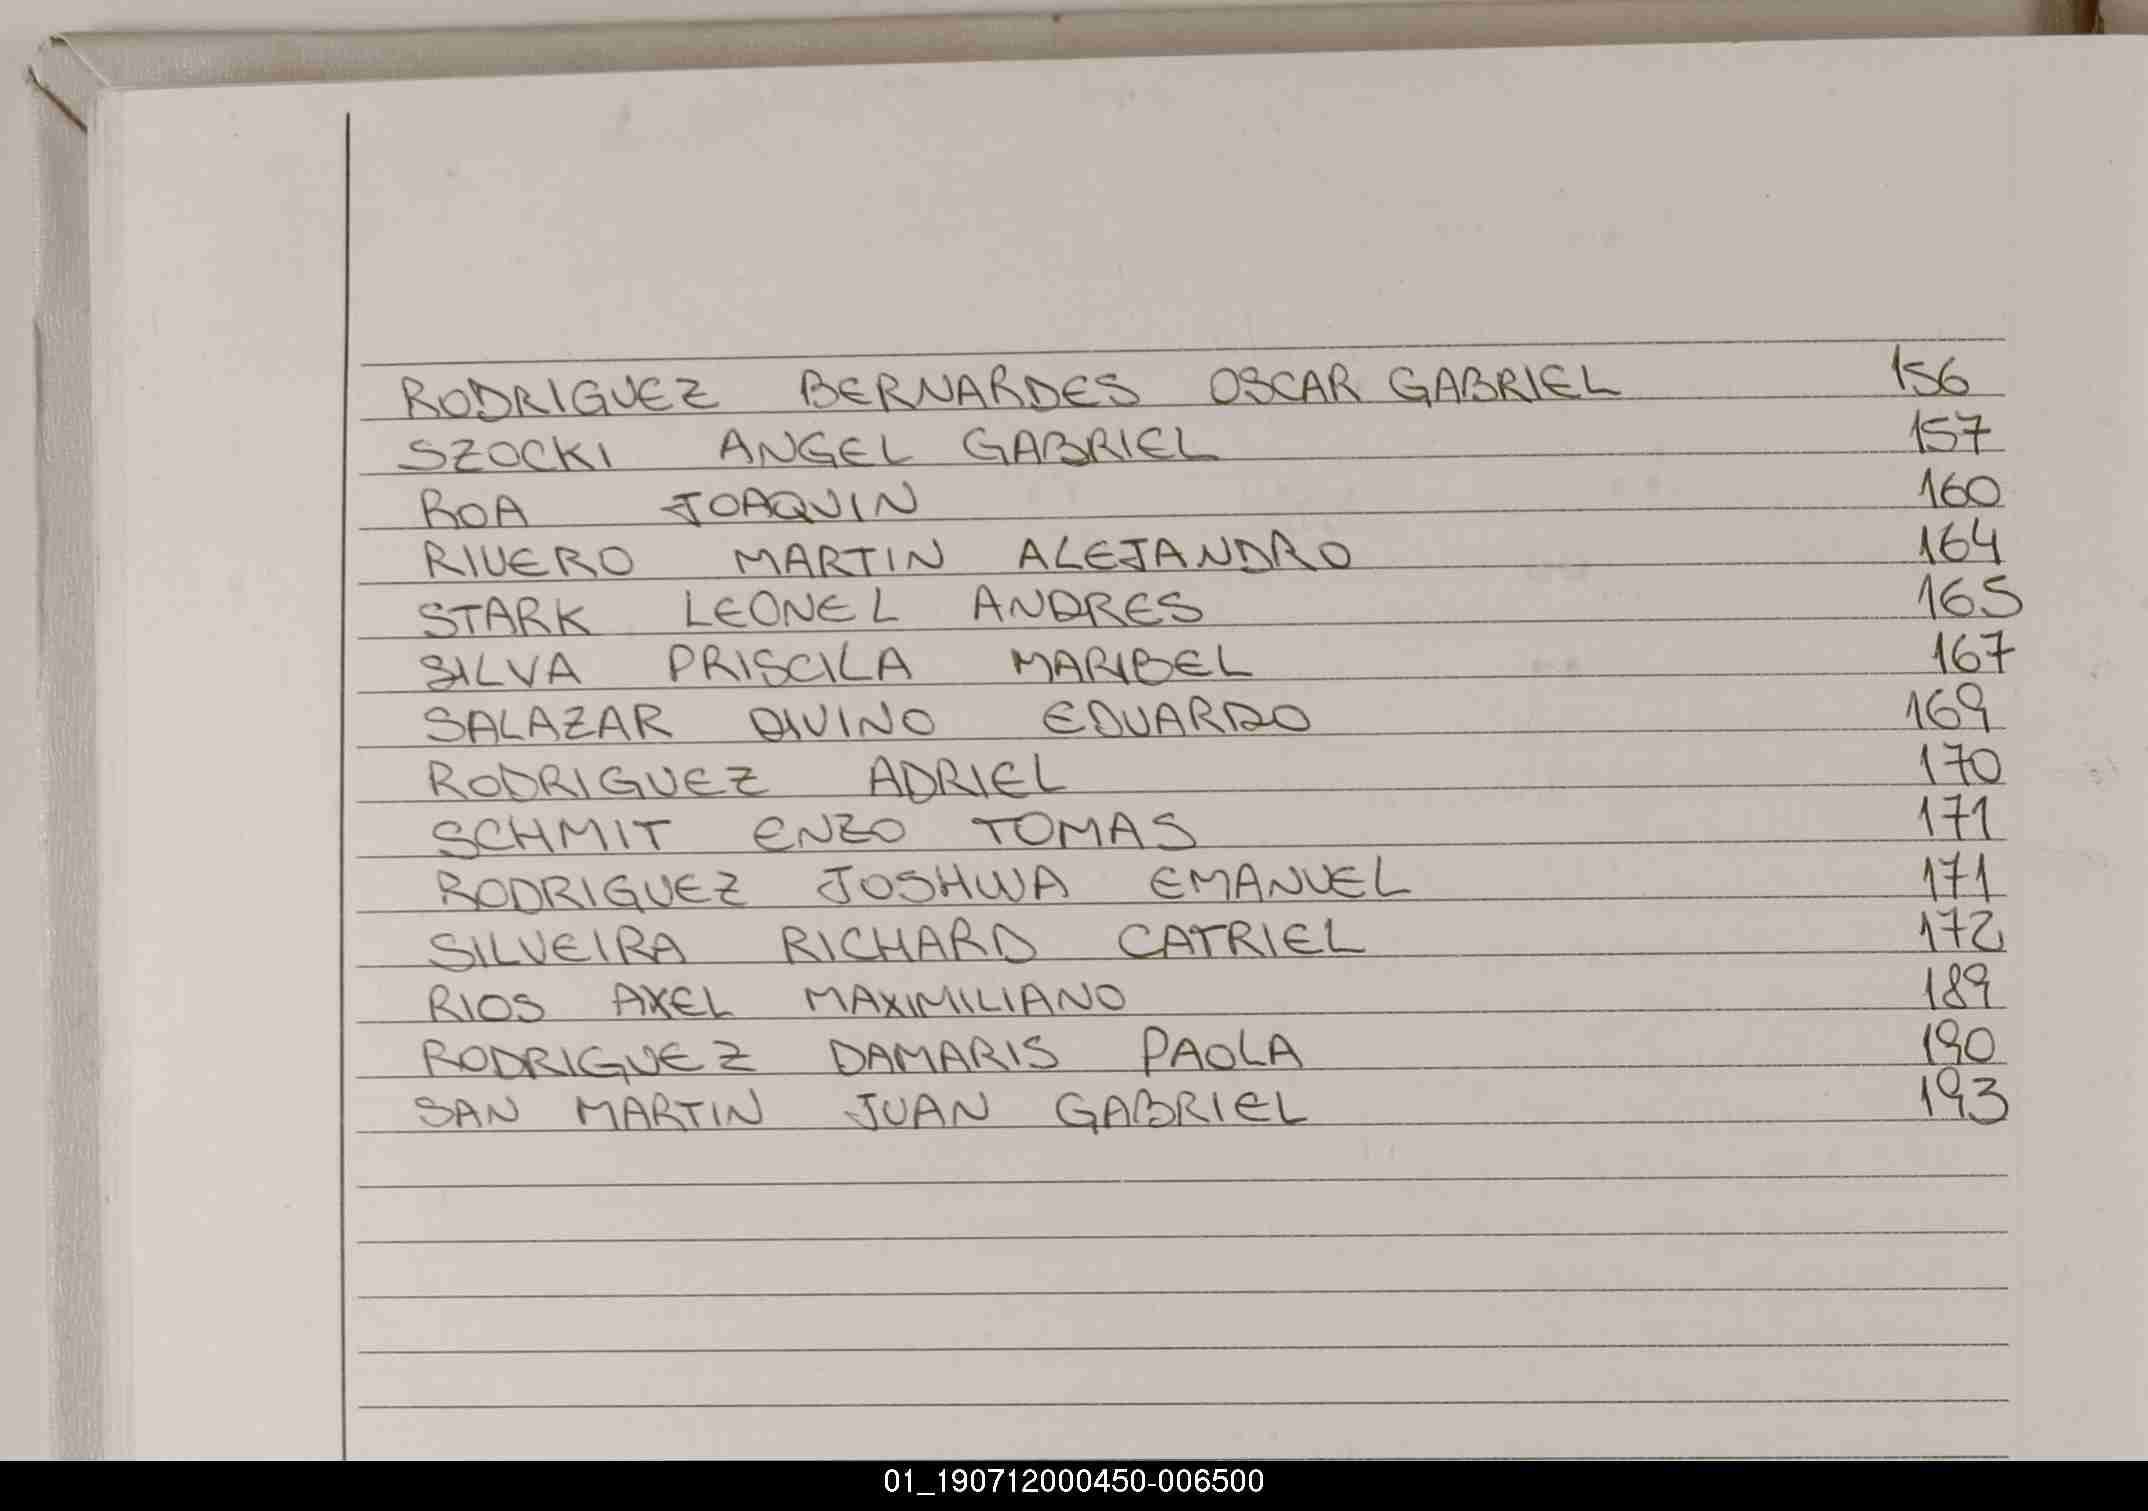 RODRIGUEZ BERNARDES OSCAR GABRIEL 156
SZOCKI ANGEL GABRIEL 157
ROA JOAQUIN 160
RIVERO MARTIN ALEJANDRO 164
STARK LEONEL ANDRES 165
SILVA PRISCILA MARIBEL 167
SALAZAR DIVINO EDUARDO 169
RODRIGUEZ ADRIEL 170
SCHMIT ENZO TOMAS 171
RODRIGUEZ JOSHWA EMANUEL 171
SILVEIRA RICHARD CATRIEL 172
RIOS AXEL MAXIMILIANO 189
RODRIGUEZ DAMARIS PAOLA 190
SAN MARTIN JUAN GABRIEL 193
01_190712000450-006500